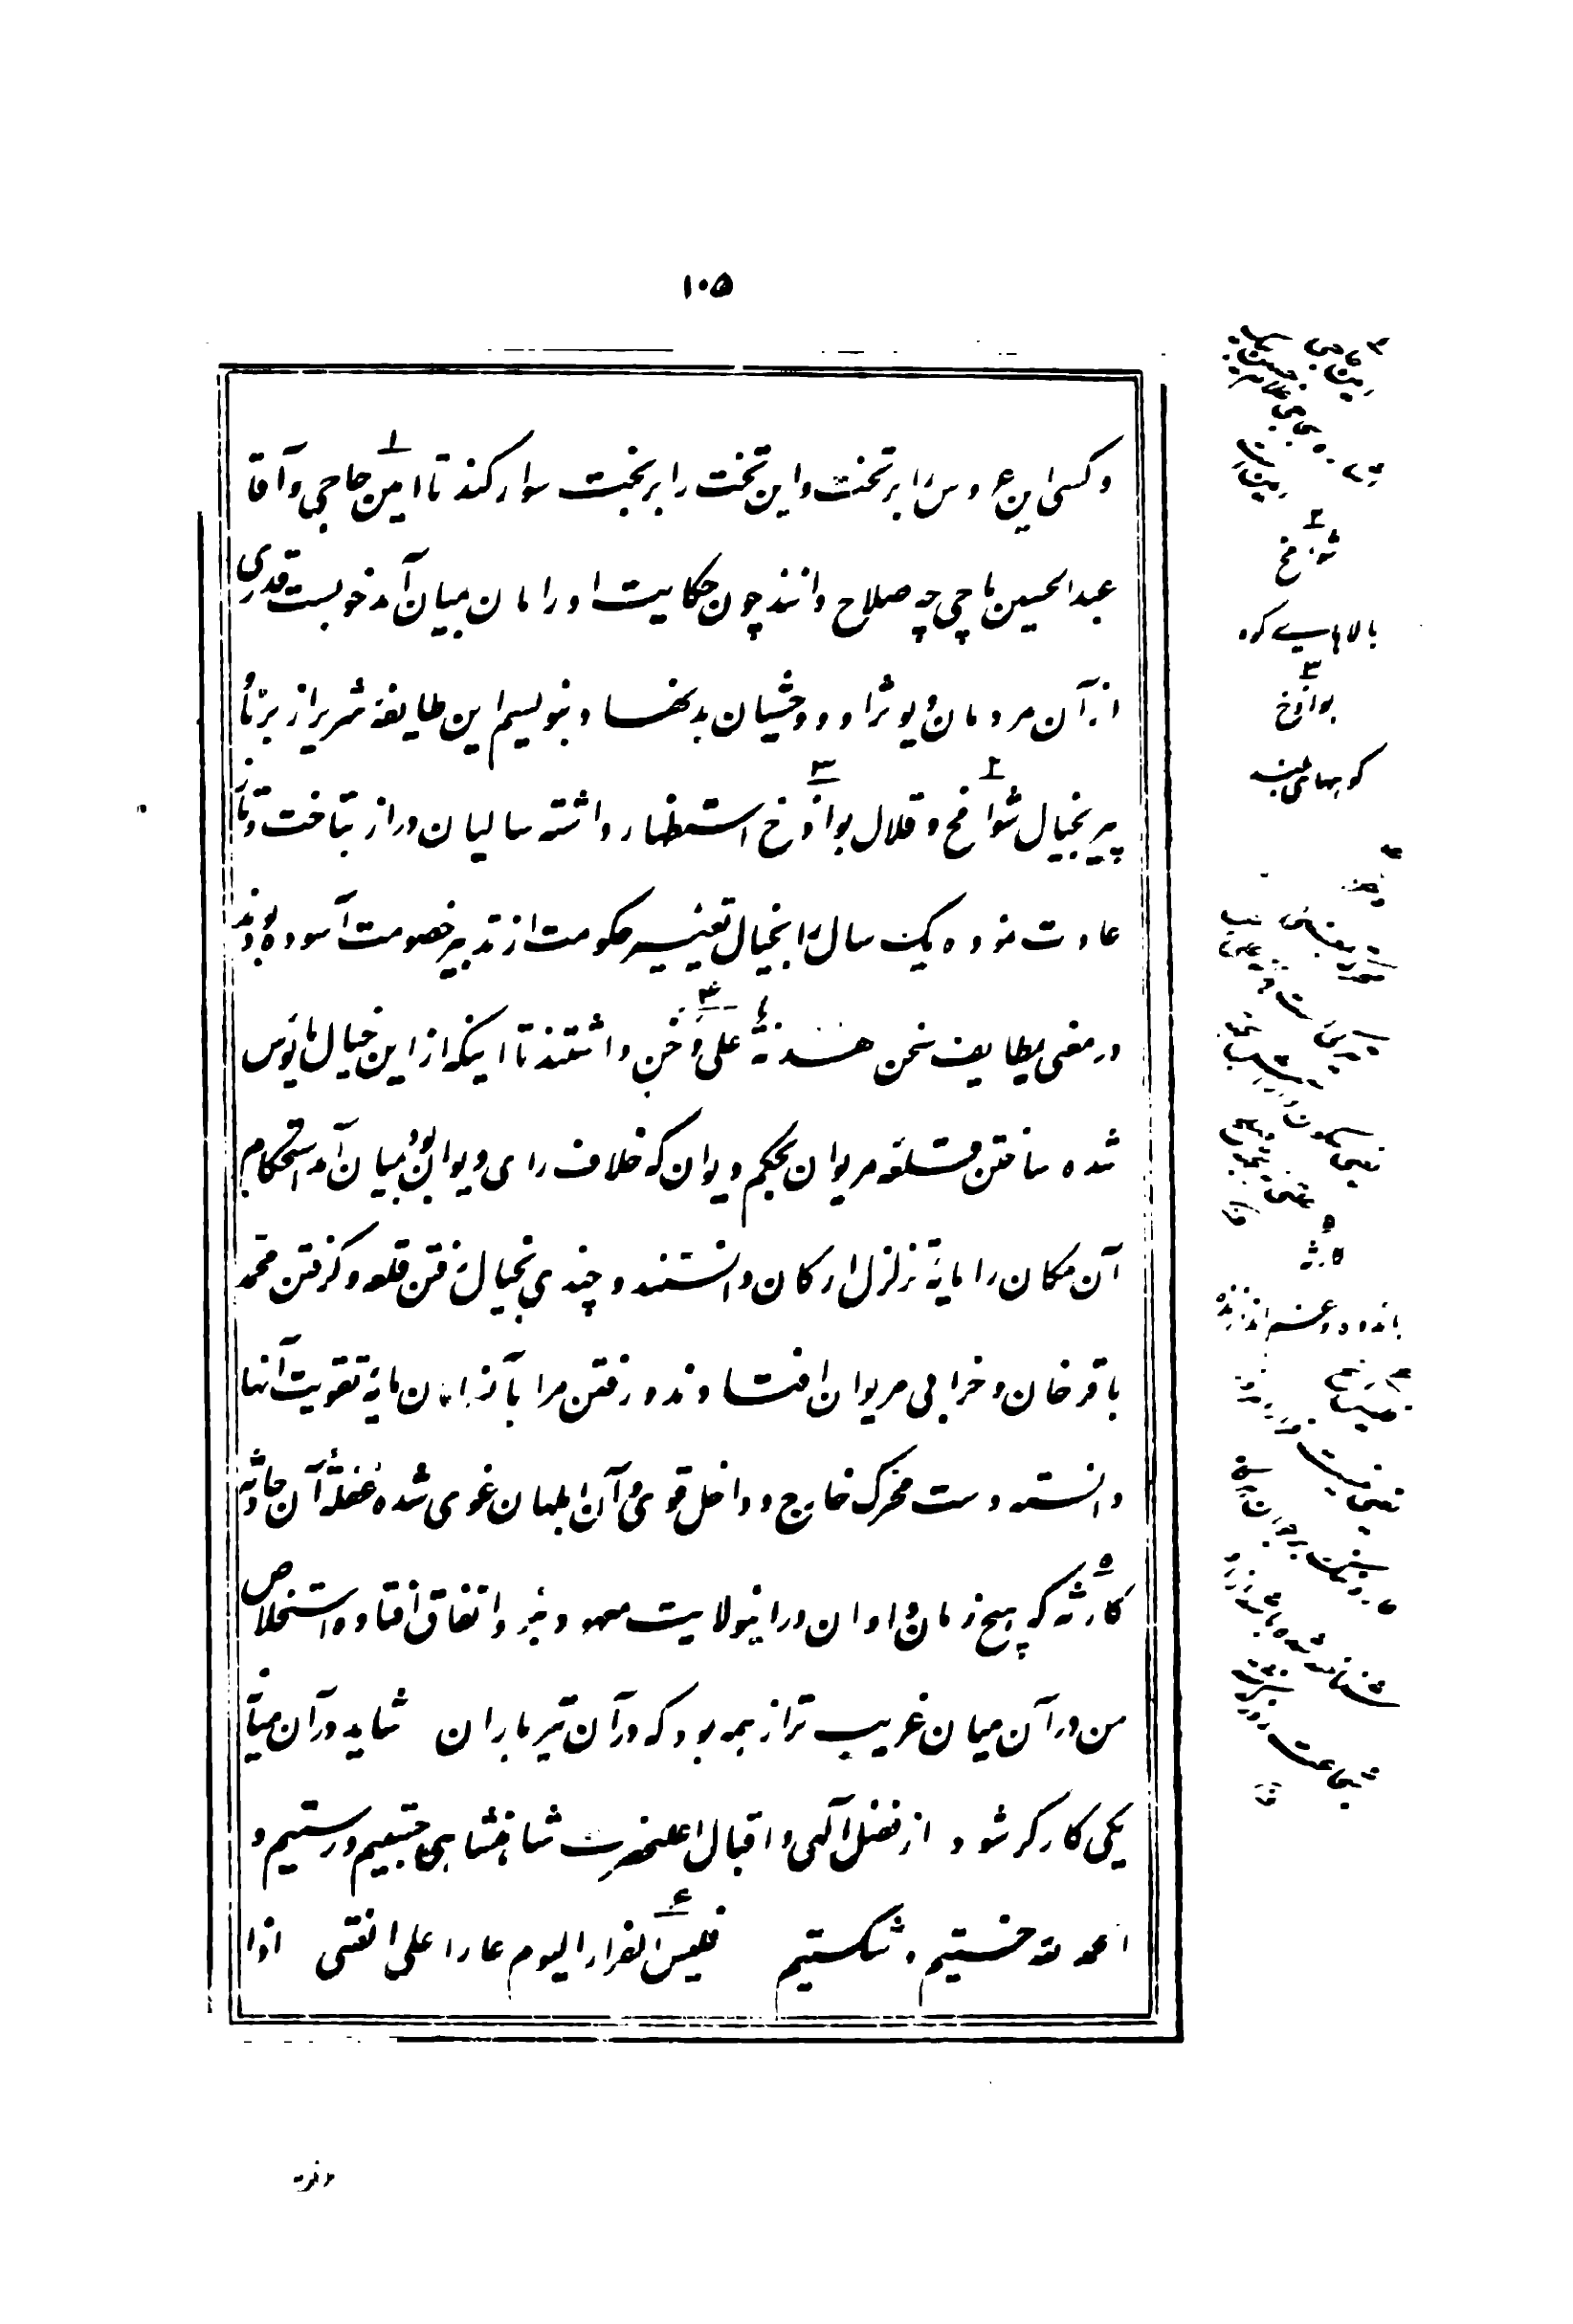 ۱۰۵
و کسی این عروس را بر تخت و این تخت را بر بخت سوار کند تا امین حاجی و آقا
عبدالحسین ماچی چه صلاح دانند چون حکایت اورامان بمیان آمد خوبست قدری
از آن مردمان دیو نژاد و وحشیان بدنهاد بنویسم این طایفه شریر از برنا و
پیر بجبال شوامخ و قلال بواذخ استظهار داشته سالیان دراز بتاخت و تاز
عادت نموده یک سال را بخیال تغییر حکومت از تدبیر خصومت آسوده بودند و
در معنی بطایف سخن هدنة علی دخن داشتند تا اینکه از این خیال مایوس
شده ساختن قلعه مریوان بحکم دیوان که خلاف رای دیوان بود بمیان آمد استحکام
آن مکان را مایهٔ تزلزل ارکان دانستند و چندی بخیال رفتن قلعه و گرفتن محمد
باقر خان و خرابی مریوان افتادند و رفتن مرا بآن زمان مایهٔ تقویت آنها
دانسته دست محرک خارج و داخل قوی و آن ابلهان غوی شده غفلة آن حادثه
کارثه که هیچ زمان و اوان در این ولایت معهود نبود اتفاق افتاد و استخلاص
من در آن میان غریب تر از همه بود که در آن تیرباران شاید در آن میان
یکی کارگر شود از فضل آلهی و اقبال اعلیحضرت شاهنشاهی جستیم و رستیم و
الحمد لله خستیم و شکستیم فلیس الفرار الیوم عارا علی الفتی اذا
۲
شوامخ
بالاهای کوه
۳
بواذخ
کوههای بلند
۵
کارثه